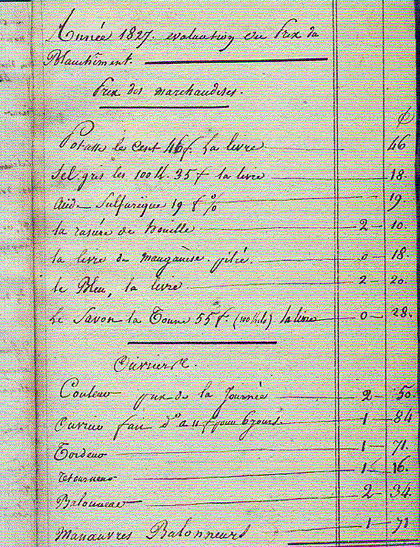 Année 1827. evaluation du Prix du
Blanchîment.
Prix des marchandises.
Potasse le cent 46f. la livre 46
Sel gris les 100 k. 35f la livre 18.
acide Sulfurique 19 f % 19
la rasière de houille 2 - 10.
la livre de manganèse pilée. 0 - 18.
le Bleu, la livre 2 - 20.
Le Savon la Tonne 55f. (100 kilo) la livre 0 - 28.
Ouvriers.
prix de la Journée 2 - 50.
Ouvrier fait d° a 11f pour 6 jours. 1 - 84
Tordeur 1 - 71.
1 - 16.
2 - 34.
Manœuvres Batonneurs 1 - 71